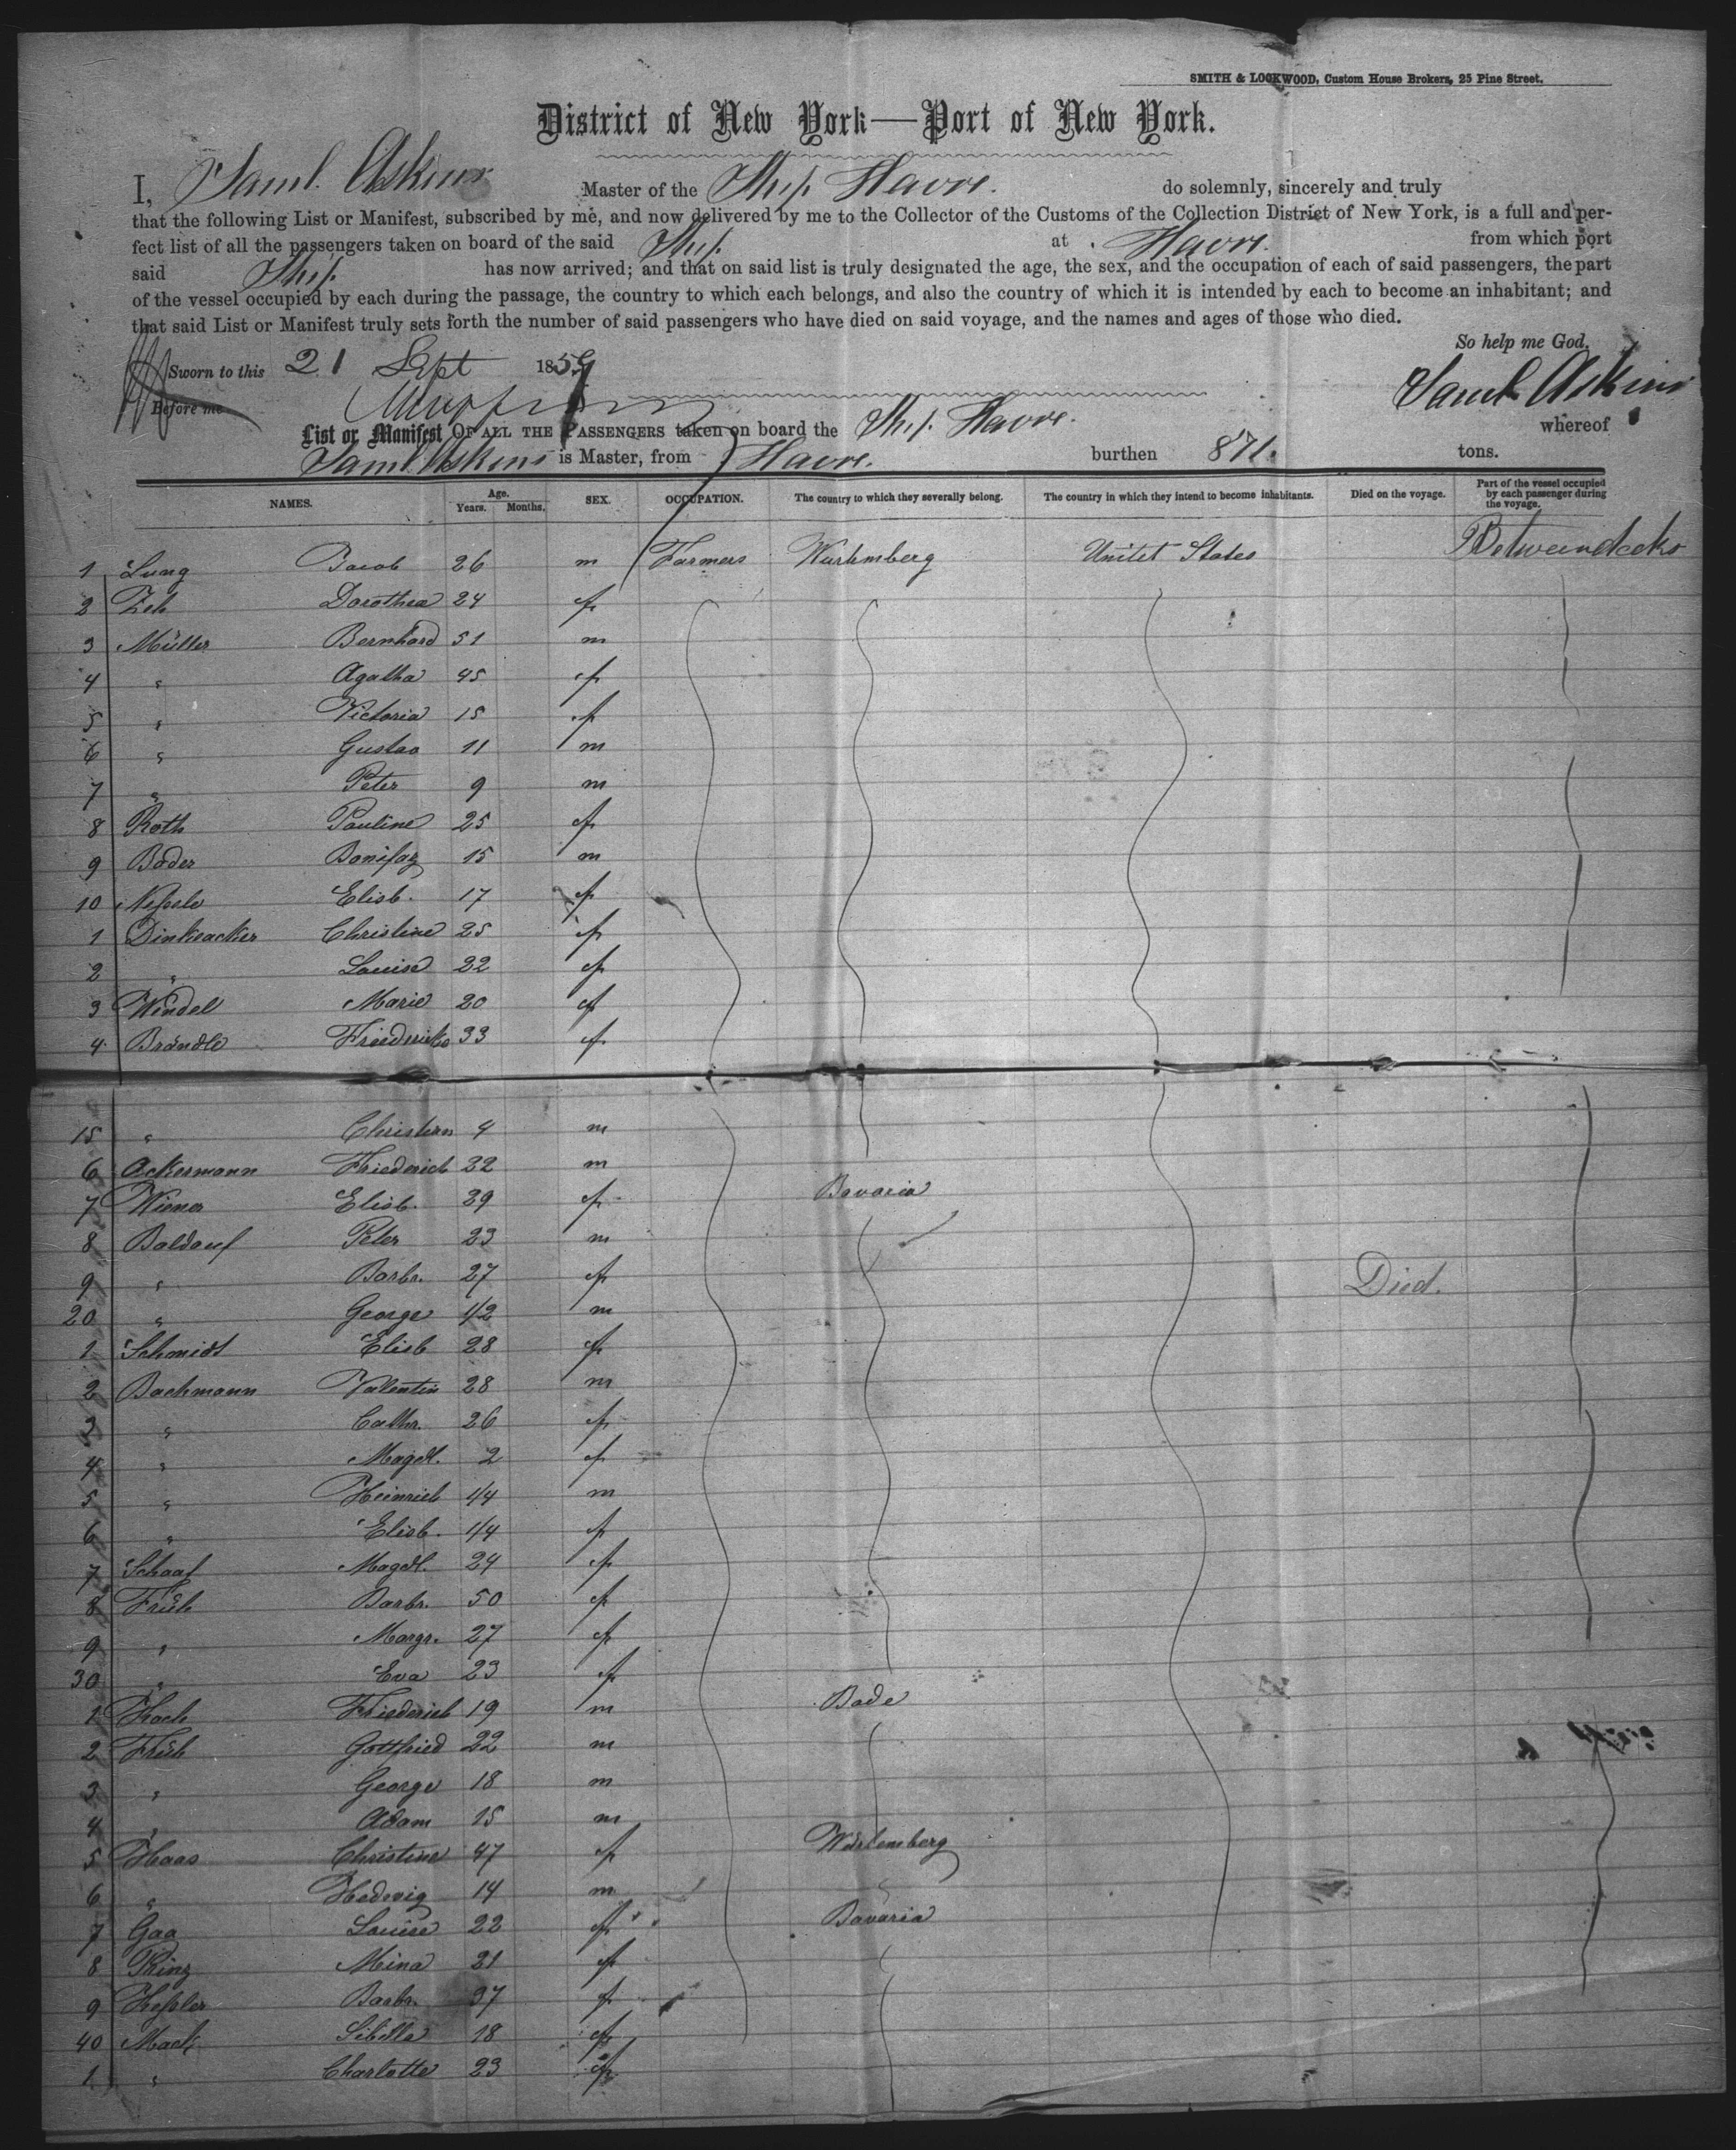 SMITH & LOOKWOOD, Custom House Brokers, 25 Pine Street.
District of New York—Port of New York.
I, Saml. Askins Master of the Ship Havre. do solemnly, sincerely and truly
that the following List or Manifest, subscribed by me, and now delivered by me to the Collector of the Customs of the Collection District of New York, is a full and per-
fect list of all the passengers taken on board of the said Ship at Havre. from which port
said Ship has now arrived; and that on said list is truly designated the age, the sex, and the occupation of each of said passengers, the part
of the vessel occupied by each during the passage, the country to which each belongs, and also the country of which it is intended by each to become an inhabitant; and
that said List or Manifest truly sets forth the number of said passengers who have died on said voyage, and the names and ages of those who died.
So help me God.
Sworn to this 21 Sept 1859
Saml Askins
Before me
List or Manifest OF ALL THE PASSENGERS taken on board the Ship Havre. whereof
Saml Askins is Master, from Havre. burthen 871. tons.
NAMES. Age. Years. Months. SEX. OCCUPATION. The country to which they severally belong. The country in which they intend to become inhabitants. Died on the voyage. Part of the vessel occupied by each passenger during the voyage.
1 Lung Jacob 26 m Farmers Wurtemberg Unitet States Betweendecks
2 Zeh Dorothea 24 f
3 Müller Bernhard 51 m
4 " Agatha 45 f
5 " Victoria 15 f
6 " Gustav 11 m
7 " Peter 9 m
8 Roth Pauline 25 f
9 Bader Bonifaz 15 m
10 Elisb. 17 f
1 Dinkeacker Christine 25 f
2 " Louise 22 f
3 Wendel Marie 20 f
4 Brändle Friedericke 33 f
15 " Christian 4 m
6 Ackermann Friederich 22 m
7 Elisb. 29 f Bavaria
8 Baldauf Peter 23 m
9 " Barbr. 27 f Died.
20 " George 1/2 m
1 Schmidt Elisb 28 f
2 Bachmann Valentin 28 m
3 " Cathr. 26 f
4 " Magdl. 2 f
5 " Heinrich 1/4 m
6 " Elisb. 1/4 f
7 Schaaf Magdl. 24 f
8 Früh Barbr. 50 f
9 " Margr. 27 f
30 " Eva 23 f
1 Friederich 19 m Bade
2 Früh Gottfried 22 m
3 " George 18 m
4 " Adam 15 m
5 Haas Christine 47 f Würtemberg
6 " Hedwig 14 m "
7 Gag Louise 22 f Bavaria
8 Mina 21 f
9 Keßler Barbr. 37 f
40 Mack Sibilla 18 f
1 " Charlotte 23 f